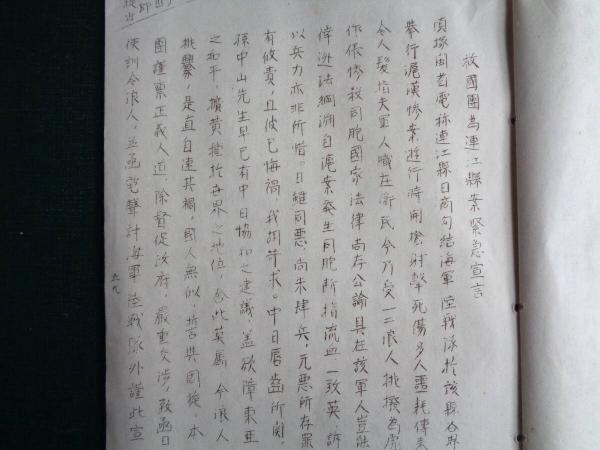 救國團為連江縣案緊急宣言
頃據閩省電称連江縣日商勾结海軍陸戰隊於該縣各界
舉行滬漢慘案遊行時開槍射擊死傷多人噩耗傳來
令人髮指夫軍人職在衛民今乃受一二浪人挑撥為虎
作倀慘殺同胞國家法律尚存公論具在該軍人豈能
倖逃法網溯自滬案發生同胞所指流血一致英訴
以兵力亦非所皆。日雖同惡，尚未肆兵，元惡所存罪
有攸責，且彼已悔禍，我胡苛求。中日唇齒所關，
孫中山先生早已有中日協和之建議，蓋欲障東亞
之和平，擴黄種於世界之地位，念此莫屬，今浪人
挑釁，是直自速其禍，國人無似，誓共同援，本
團謹秉正義人道，除督促政府，嚴重交涉，致函日
使訓令浪人，並函電聲討海軍陸戰隊外謹此宣
五九